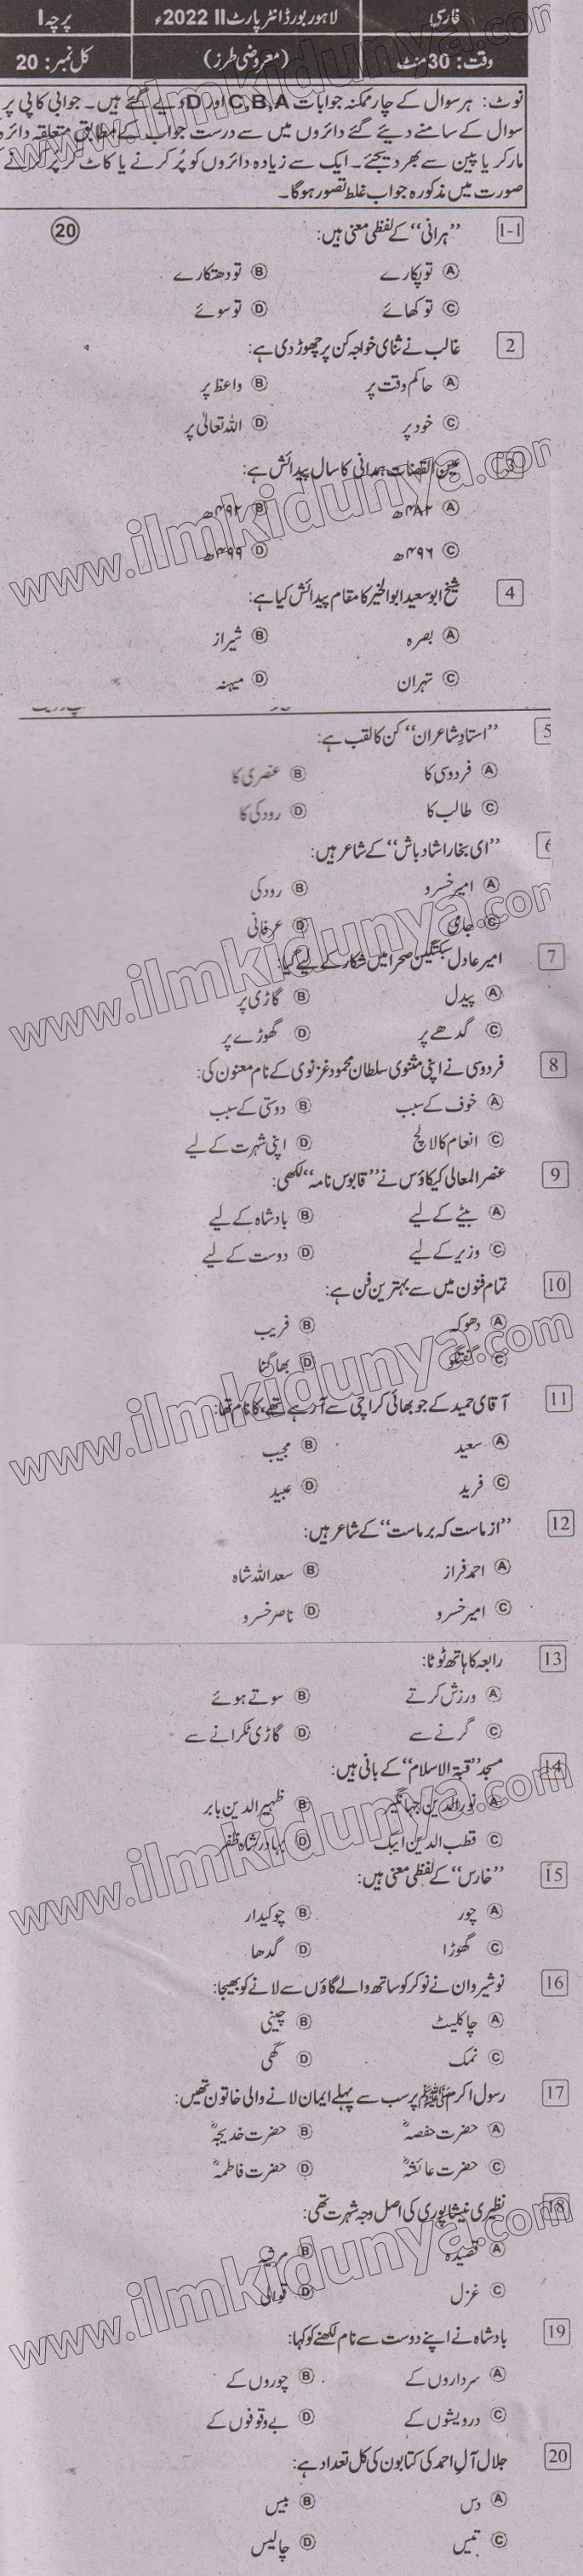 فارسی
لاہور بورڈ انٹر پارٹ II 2022ء
پرچہ I
وقت: 30 منٹ
(معروضی طرز)
کل نمبر: 20
نوٹ: ہر سوال کے چار ممکنہ جوابات C,B,A اور D دیے گئے ہیں۔ جوابی کاپی پر
سوال کے سامنے دیئے گئے دائروں میں سے درست جواب کے مطابق متعلقہ دائرہ
مارکر یا پین سے بھر دیجئے۔ ایک سے زیادہ دائروں کو پُر کرنے یا کاٹ کر پُر کرنے کی
صورت میں مذکورہ جواب غلط تصور ہوگا۔
1-1 ’’ہرانی‘‘ کے لفظی معنی ہیں: 20
A تو پکارے B تو دھتکارے
C تو کھائے D تو سوئے
2 غالب نے ثنای خواجہ کن پر چھوڑ دی ہے:
A حاکم وقت پر B واعظ پر
C خود پر D اللہ تعالیٰ پر
3 عین القضات ہمدانی کا سال پیدائش ہے:
A ۴۸۲ھ B ۴۹۲ھ
C ۴۹۶ھ D ۴۹۹ھ
4 شیخ ابوسعید ابوالخیر کا مقام پیدائش کیا ہے:
A بصرہ B شیراز
C تہران D میہنہ
5 ’’استاد شاعران‘‘ کن کا لقب ہے:
A فردوسی کا B عنصری کا
C طالب کا D رودکی کا
6 ’’ای بخارا شاد باش‘‘ کے شاعر ہیں:
A امیر خسرو B رودکی
C جامی D عرفانی
7 امیر عادل سبکتگین صحرا میں شکار کے لیے گیا:
A پیدل B گاڑی پر
C گدھے پر D گھوڑے پر
8 فردوسی نے اپنی مثنوی سلطان محمود غزنوی کے نام معنون کی:
A خوف کے سبب B دوستی کے سبب
C انعام کا لالچ D اپنی شہرت کے لیے
9 عنصر المعالی کیکاؤس نے ’’قابوس نامہ‘‘ لکھی:
A بیٹے کے لیے B بادشاہ کے لیے
C وزیر کے لیے D دوست کے لیے
10 تمام فنون میں سے بہترین فن ہے:
A دھوکہ B فریب
C گفتگو D بھاگنا
11 آقای حمید کے جو بھائی کراچی سے آ رہے تھے، کا نام تھا:
A سعید B مجیب
C فرید D عبید
12 ’’از ماست کہ بر ماست‘‘ کے شاعر ہیں:
A احمد فراز B سعد اللہ شاہ
C امیر خسرو D ناصر خسرو
13 رابعہ کا ہاتھ ٹوٹا:
A ورزش کرتے B سوتے ہوئے
C گرنے سے D گاڑی ٹکرانے سے
14 مسجد ’’قبۃ الاسلام‘‘ کے بانی ہیں:
A نورالدین جہانگیر B ظہیر الدین بابر
C قطب الدین ایبک D بہادر شاہ ظفر
15 ’’خارس‘‘ کے لفظی معنی ہیں:
A چور B چوکیدار
C گھوڑا D گدھا
16 نوشیروان نے نوکر کو ساتھ والے گاؤں سے لانے کو بھیجا:
A چاکلیٹ B چینی
C نمک D گھی
17 رسول اکرم ﷺ پر سب سے پہلے ایمان لانے والی خاتون تھیں:
A حضرت حفصہؓ B حضرت خدیجہؓ
C حضرت عائشہؓ D حضرت فاطمہؓ
18 نظیری نیشاپوری کی اصل وجہ شہرت تھی:
A قصیدہ B مرثیہ
C غزل D قوالی
19 بادشاہ نے اپنے دوست سے نام لکھنے کو کہا:
A سرداروں کے B چوروں کے
C درویشوں کے D بے وقوفوں کے
20 جلال آل احمد کی کتابوں کی کل تعداد ہے:
A دس B بیس
C تیس D چالیس
www.ilmkidunya.com
www.ilmkidunya.com
www.ilmkidunya.com
www.ilmkidunya.com
www.ilmkidunya.com
www.ilmkidunya.com